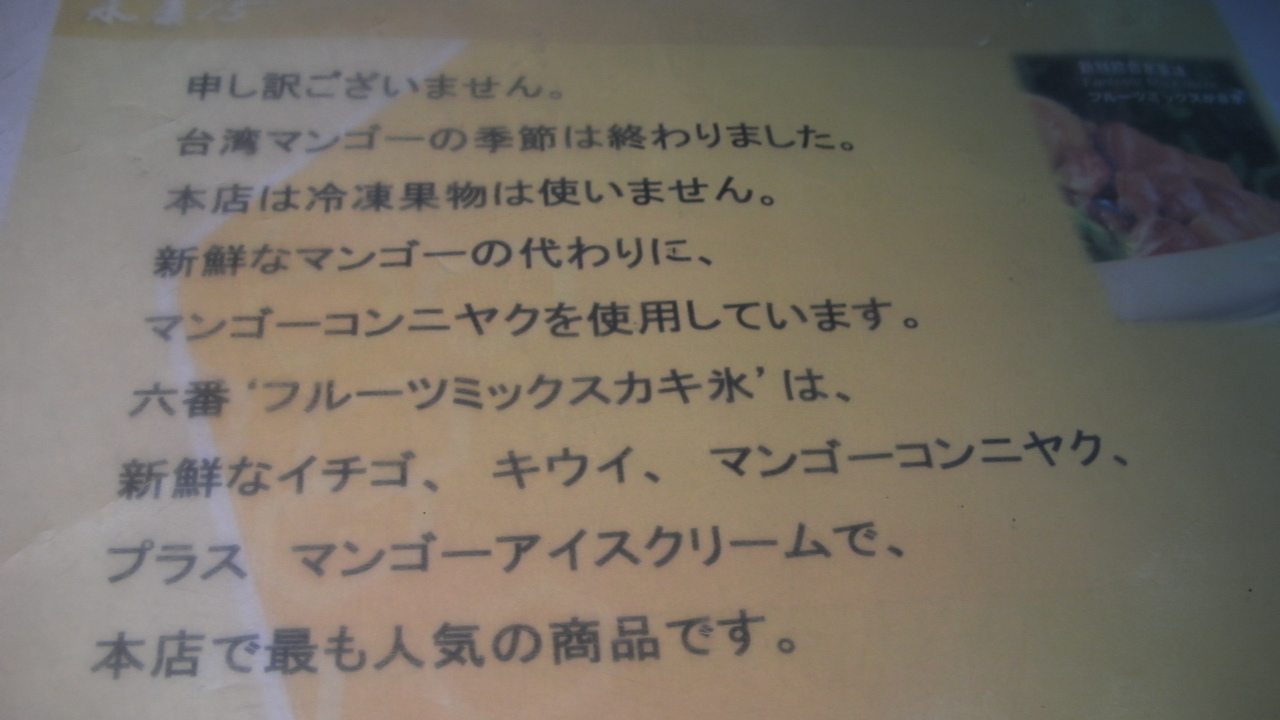 申し訳ございません。
台湾マンゴーの季節は終わりました。
本店は冷凍果物は使いません。
新鮮なマンゴーの代わりに、
マンゴーコンニヤクを使用しています。
六番‘フルーツミックスカキ氷’は、
新鮮なイチゴ、 キウイ、 マンゴーコンニヤク、
プラス マンゴーアイスクリームで、
本店で最も人気の商品です。
フルーツミックス